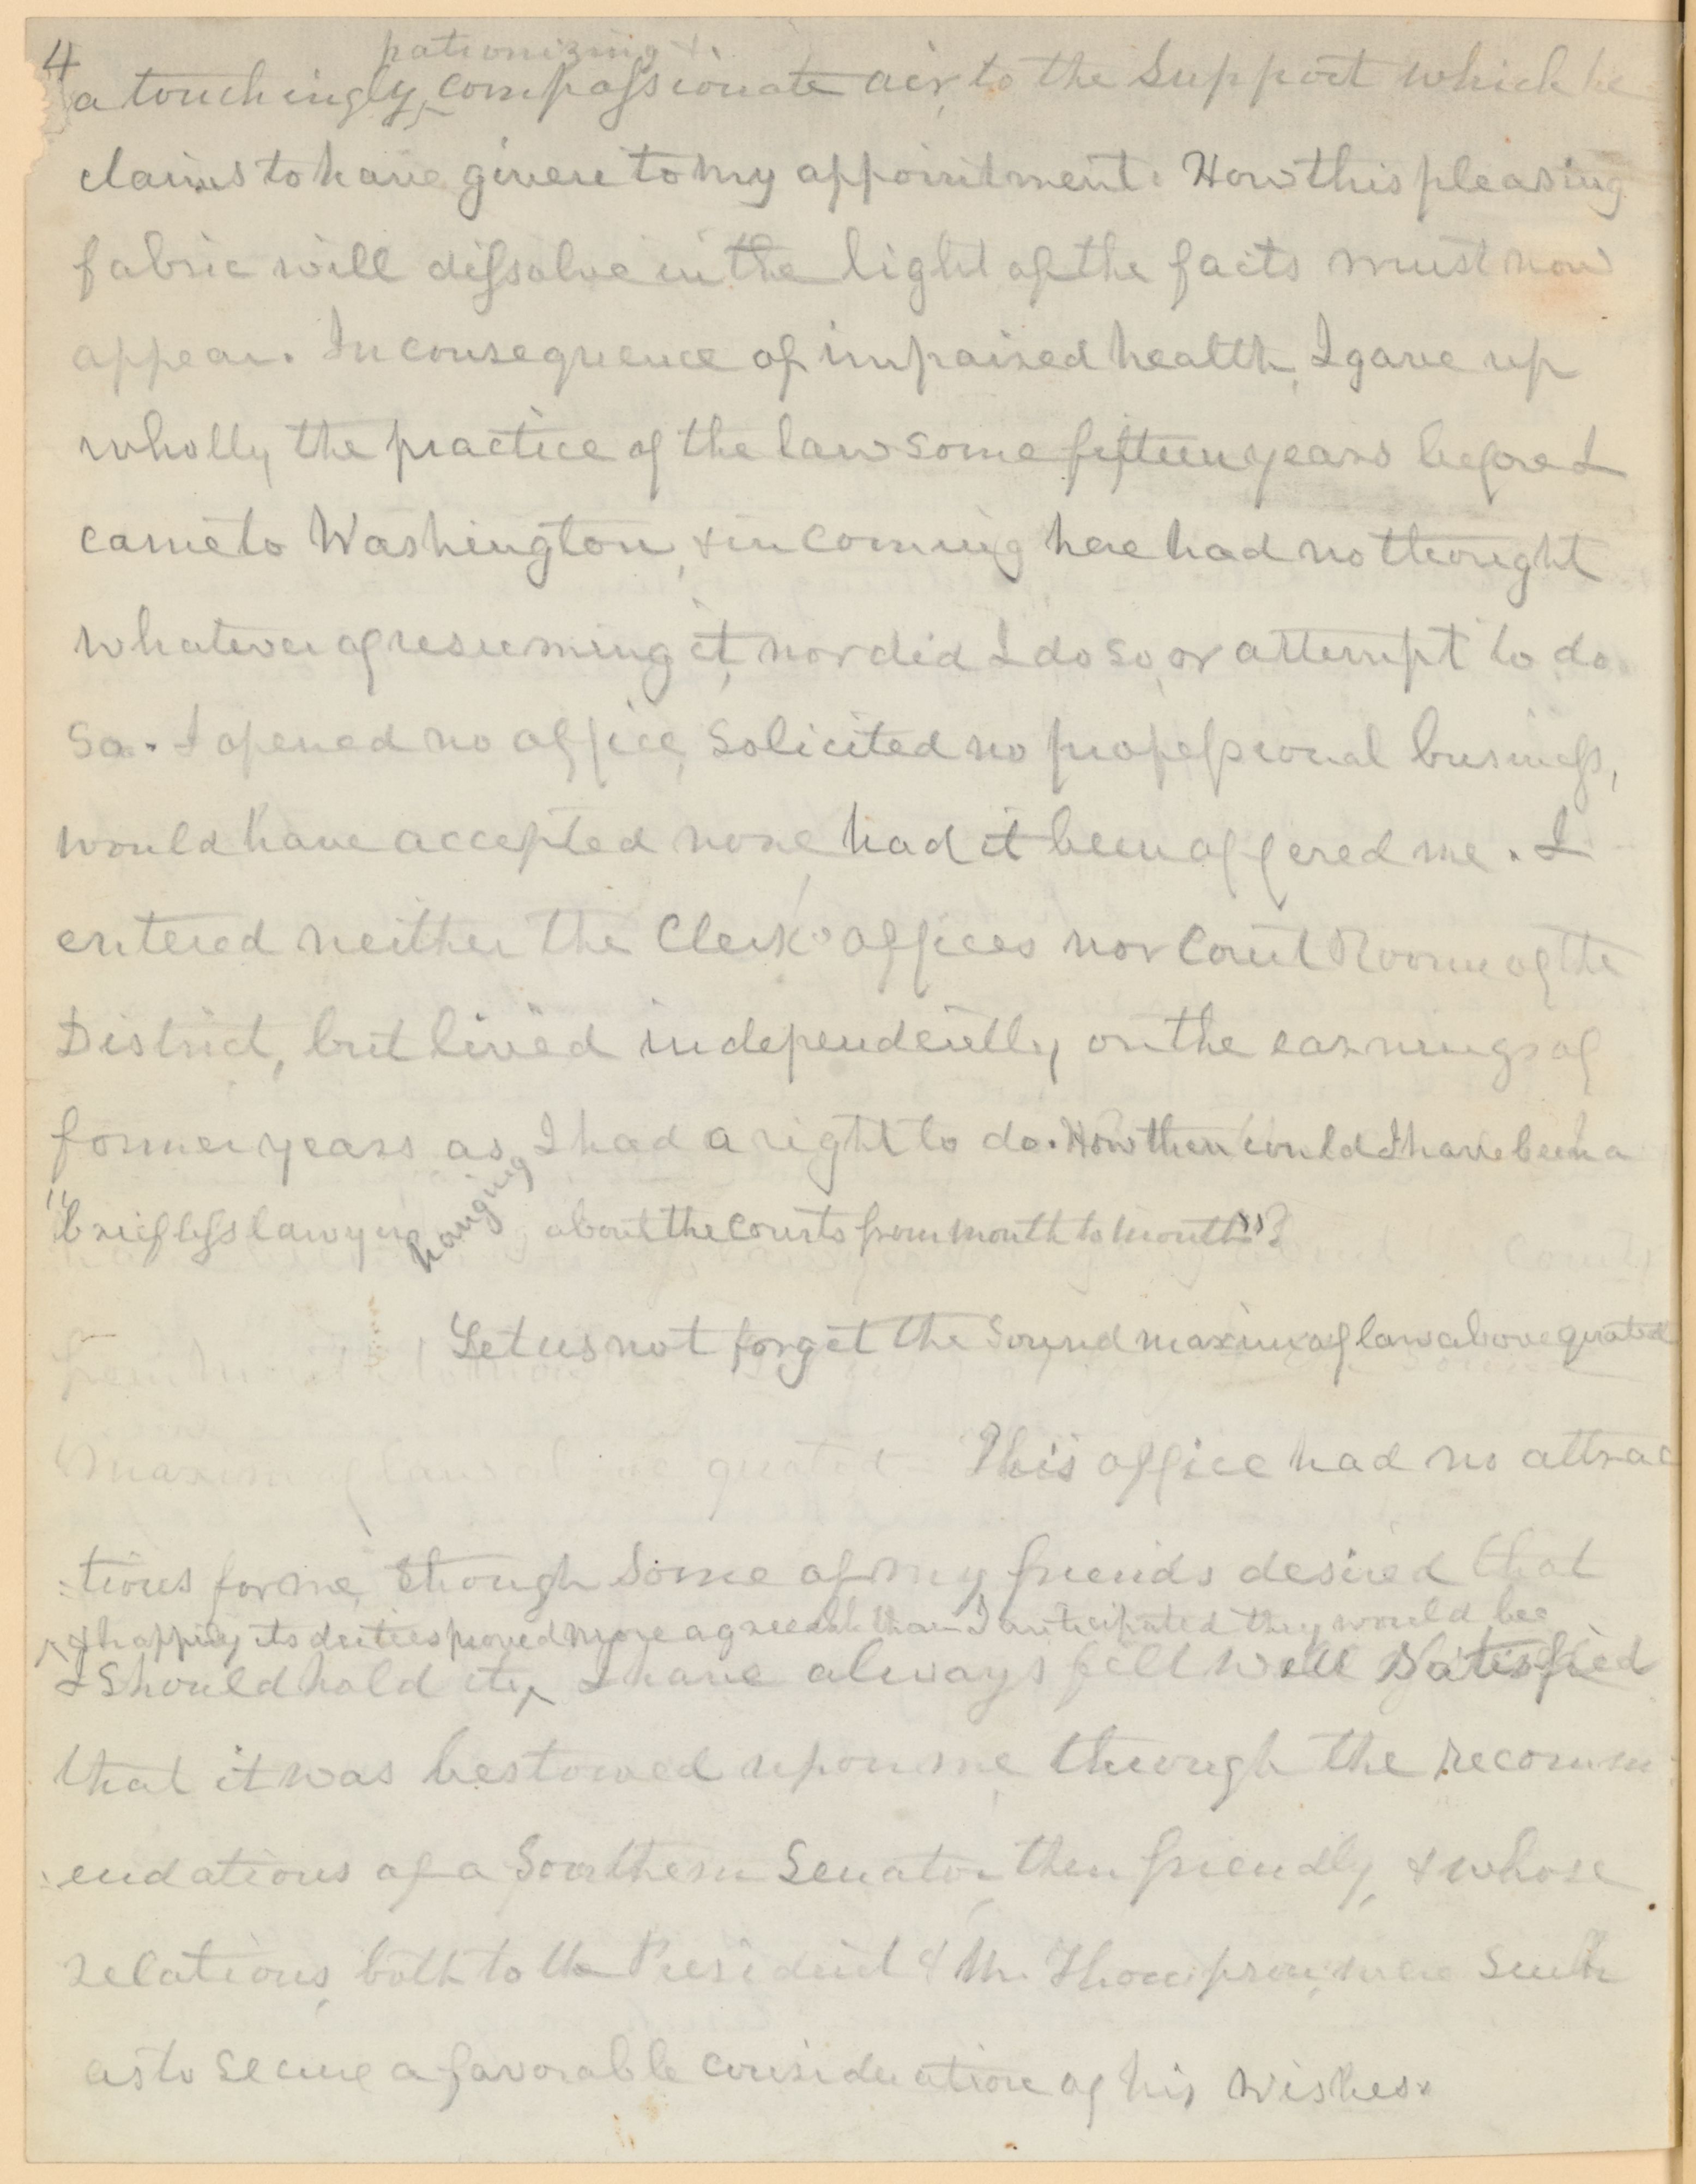 4
patronizing &
a touchingly compassionate air, to the Support which he
claims to have given to my appointment. How this pleasing
fabric will dissolve in the light of the facts must now
appear. In consequence of impaired health, I gave up
wholly the practice of the law some fifteen years before I
came to Washington, & in coming here had no thought
whatever of resuming it, nor did I do so, or attempt to do
so. I opened no office, solicited no professional business,
would have accepted none, had it been offered me. I
entered neither the Clerk's offices nor Court Rooms of the
District, but lived independently on the earnings of
former years as I had a right to do. How then could I have been a
"briefless lawyer hanging about the courts from month to month"?
Let us not forget the sound maxim of law above quoted
maxim of law above quoted This office had no attrac
:tions for me, though some of my friends desired that
& happily its duties proved more agreeable than I anticipated they would be
I should hold it, I have always felt well satisfied
that it was bestowed upon me through the recomm
:endations of a Southern Senator, then friendly, & whose
relations, both to the President & Mr. Thompson, were such
as to secure a favorable consideration of his wishes.